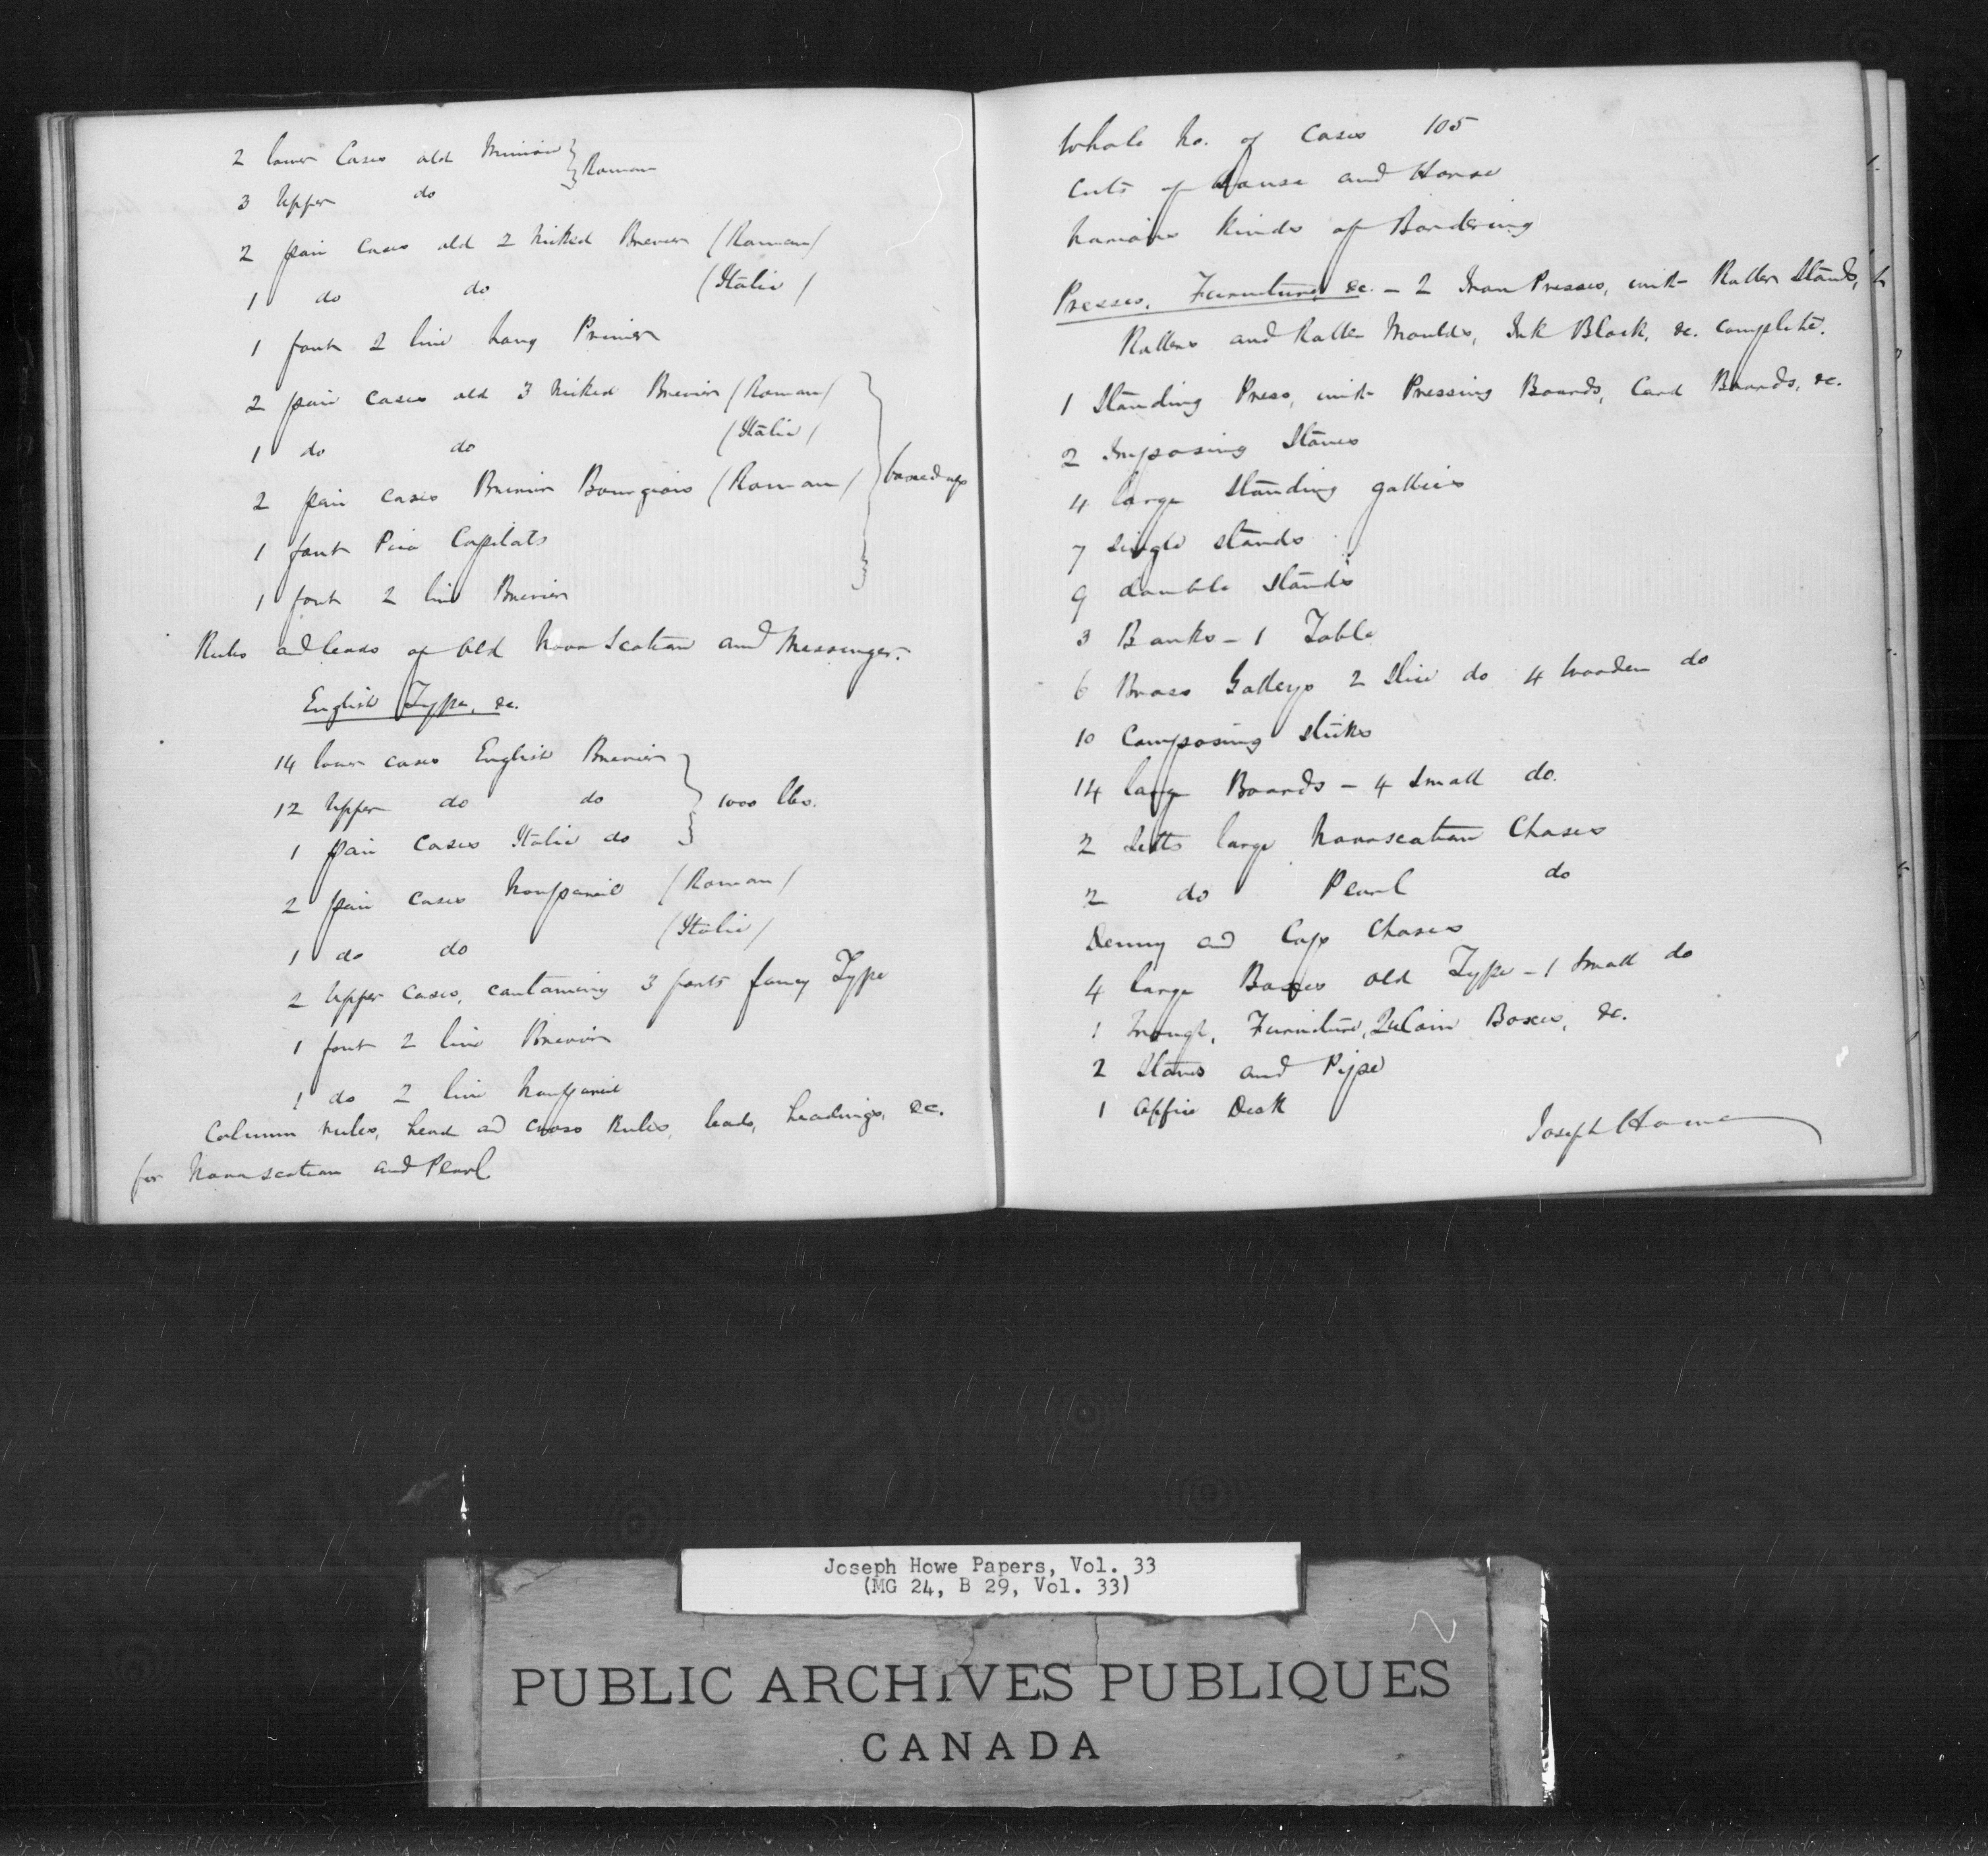 2 lower Cases old Minion } Roman
3 Upper do
2 pair Cases old 2 nicked Brevier (Roman)
1 do do (Italic)
1 font 2 line Long Primer
2 pair cases old 3 nicked Brevier (Roman)
1 do do (Italic)
2 pair cases Brevier Bourgiois (Roman) } boxed up
1 font Pica Capitals
1 font 2 line Brevier
Rules and leads of Old Nova Scotian and Messenger.
English Type, &c.
14 lower cases English Brevier
12 Upper do do } 1000 lbs.
1 pair Cases Italic do
2 pair Cases Nonpareil (Roman)
1 do do (Italic)
2 Upper Cases, containing 3 fonts fancy Type
1 font 2 line Brevier
1 do 2 line Nonpareil
Column rules, head and cross Rules, leads, headings, &c.
for Novascotian and Pearl
Whole No. of Cases 105
Cuts of House and Horse
Various Kinds of Bordering
Presses, Furniture, &c. - 2 Iron Presses, with Roller Stands, 2
Rollers and Roller Moulds, Ink Block, &c. complete.
1 Standing Press, with Pressing Boards, Card Boards, &c.
2 Imposing Stones
4 large Standing gallies
7 single stands
9 double Stands
3 Banks - 1 Table
6 Brass Galleys 2 Slice do 4 Wooden do
10 Composing Sticks
14 large Boards - 4 Small do.
2 Setts large Novascotian Chases
2 do Pearl do
Demy and Cap Chases
4 large Boxes old Type - 1 Small do
1 Trough, Furniture, Qu Coin Boxes, &c.
2 Stoves and Pipe
1 Office Desk
Joseph Howe
Joseph Howe Papers, Vol. 33
(MG 24, B 29, Vol. 33)
PUBLIC ARCHIVES PUBLIQUES
CANADA